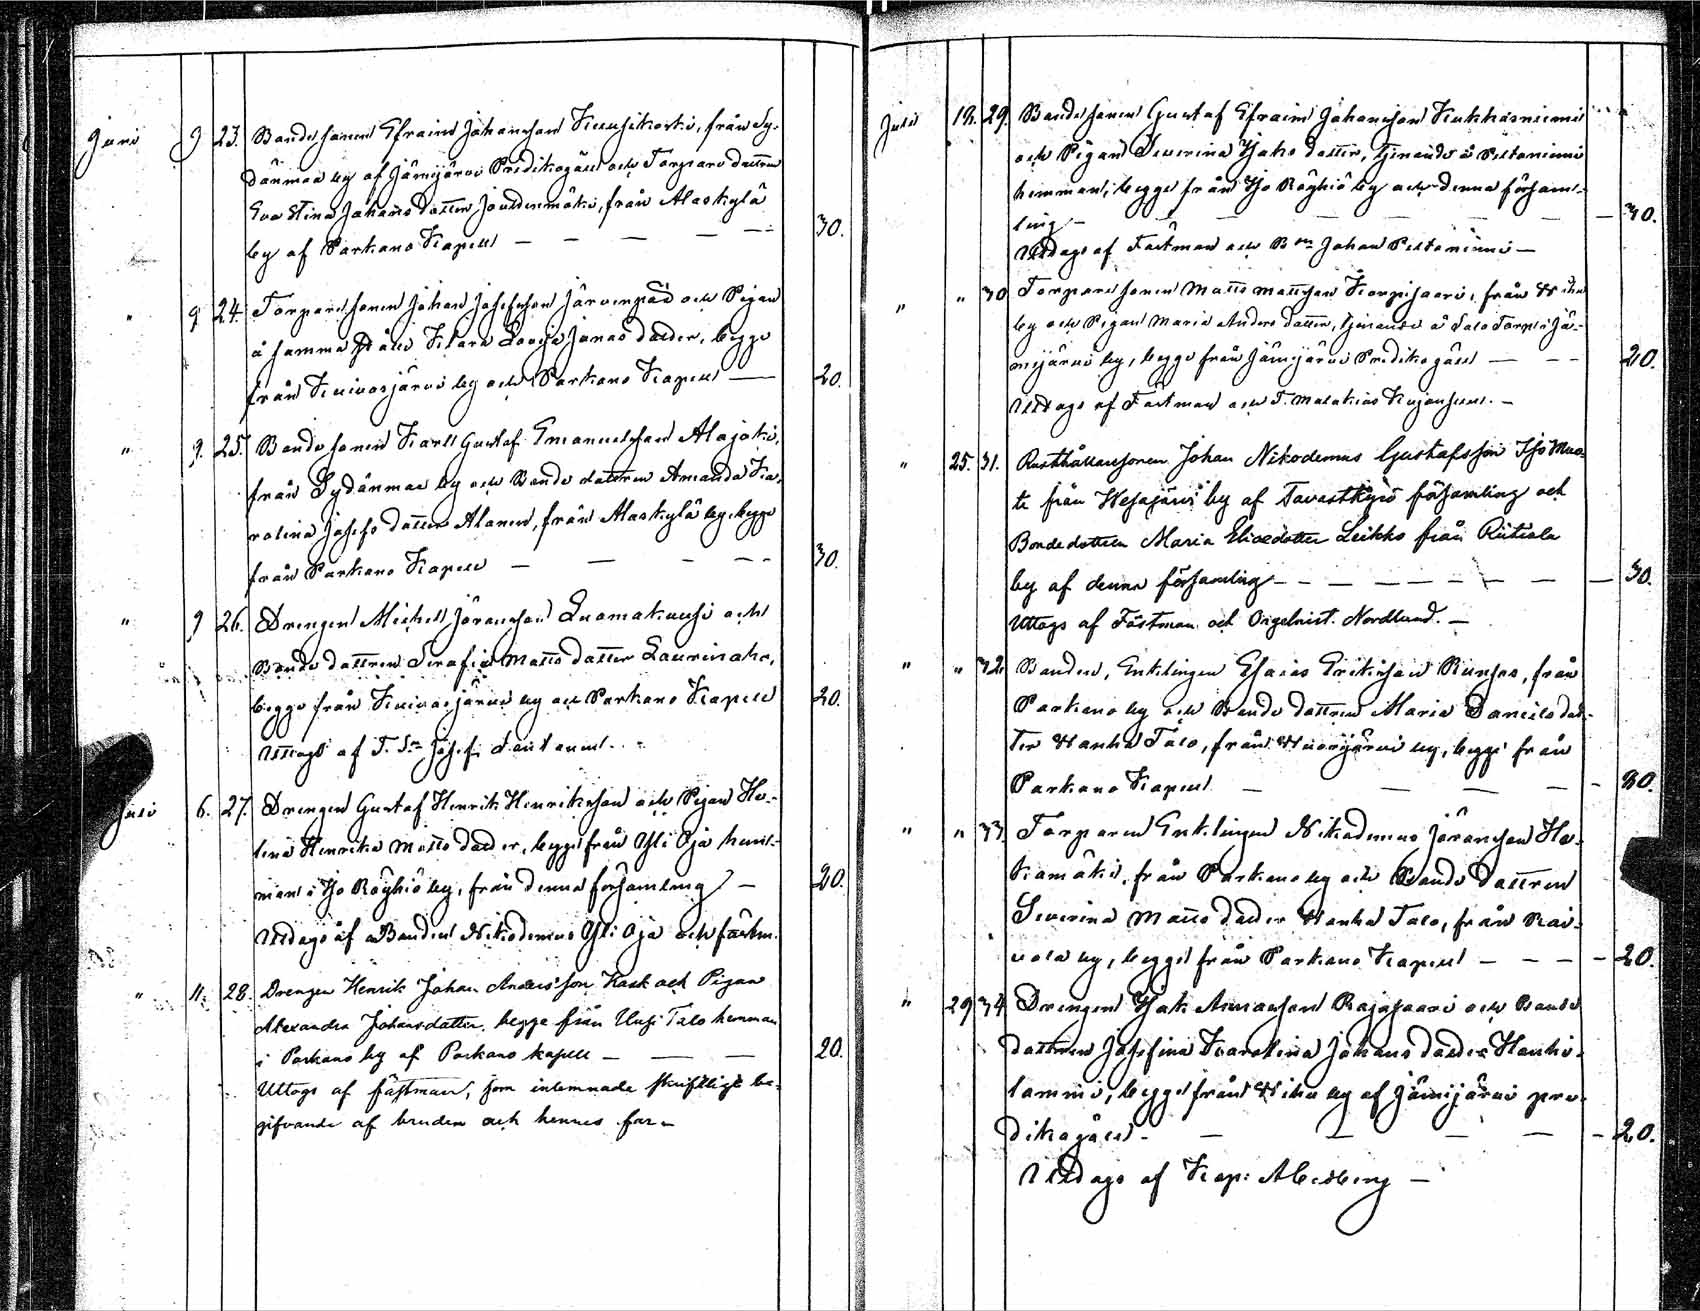 Juni 9 23. Bondesonen Efraim Johansson Kuusikoski, från Sy-
dänmaa by af Jämijärvi Predikogäll och Torpare dattren
Eva Stina Johans datter Jouldenmäki, från Alaskylä
by af Parkano Kapell — — — — — 30.
" 9 24. Torpare sonen Johan Josefsson Järvenpää och Pigan
å samma ställe Klara Lovisa Jonas datter, begge
från Kuivasjärvi by och Parkano Kapell — 20.
" 9. 25. Bonde sonen Karl Gustaf Emanuelsson Alajoki,
från Sydänmaa by och Bonde dattren Amanda Ka-
rolina Josefs datter Alanen, från Alaskylä by, begge
från Parkano Kapell — — — — 30.
" 9 26. Drengen Michell Göransson Luomakuusi och
Bonde dattren Serafia Matts datter Laurinaho,
begge från Kuivasjärvi by och Parkano Kapell 20.
Uttogs af T. Sn Josef
Juli 6. 27. Drengen Gustaf Henrik Henriksson och Pigan He-
lena Henrika Matts datter, begge från Yli Oja hem-
man i Yso Röyhiö by, från denna församling — 20.
Utdags af Bonden Nikodemus Yli Oja och fästm.
" 11. 28. Drengen Henrik Johan Andersson Kask och Pigan
Alexandra Johansdatter, begge från Uusi Talo hemman
i Parkano by af Parkano kapell — — — 20.
Uttogs af fästman, som inlemnade skriftligt be-
gifvande af bruden och hennes far —
Juli 12. 29. Bonde sonen Gustaf Efraim Johansson Kukkasniemi
och Pigan Severina Isaks datter, tjenande å Peltoniemi
hemman, begge från Yso Röyhiö by och denna försam-
ling — — — — — — — 30.
Utdags af Fästman och Bn Johan Peltoniemi —
" " 30 Torpare sonen Matts Mattsson Korpisaari, från Wihu
by och Pigan Maria Anders datter, tjenande å Salo Torp i Jä-
mijärvi by, begge från Jämijärvi Predikogäll — — — 20.
Utdags af Fästman och T. Malakias Kujansuu. —
" 25. 31. Rusthållaresonen Johan Nikodemus Gustafsson Iso Mus-
ta från Wesajärvi by af Tavastkyrö församling och
Bondedottren Maria Eliaedotter Leikko från Riitiala
by af denna församling — — — — — — 30.
Uttogs af Fästman och Orgelnist. Nordlund. —
" " 32. Bonden, Enklingen Esaias Eriksson Runsas, från
Parkano by och Bonde dattren Maria Daniels dat-
ter Wanha Talo, från Wuorijärvi by, begge från
Parkano Kapell — — — — — 30.
" " 33. Torparen Enklingen Nikodemus Göransson Ha-
kamäki, från Parkano by och Bonde dattren
Severina Matts datter Wanha Talo, från Rai-
vala by, begge från Parkano Kapell — — — — 20.
" 29 34 Drengen Isak Amansson Rajasaari och Bonde
dattren Josefina Karolina Johans datter Hanhi-
lammi, begge från Wihu by af Jämijärvi pre-
dikogäll — — — — — — 20.
Utdags af Kap: Ahlberg —